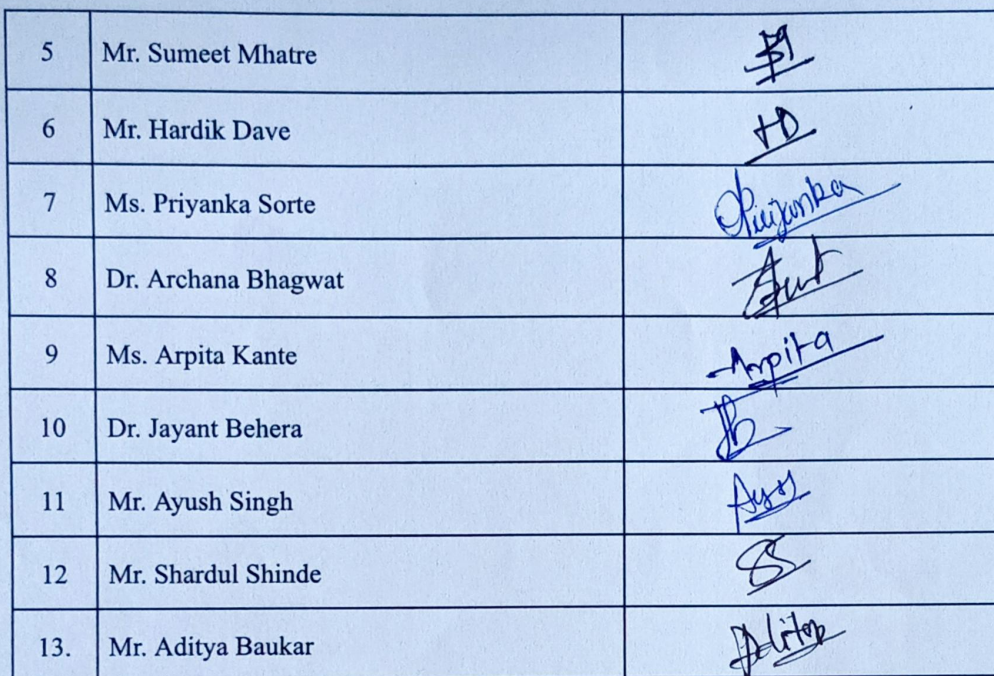 5 Mr. Sumeet Mhatre
6 Mr. Hardik Dave HD
7 Ms. Priyanka Sorte Priyanka
8 Dr. Archana Bhagwat
9 Ms. Arpita Kante Arpita
10 Dr. Jayant Behera
11 Mr. Ayush Singh
12 Mr. Shardul Shinde SS
13. Mr. Aditya Baukar